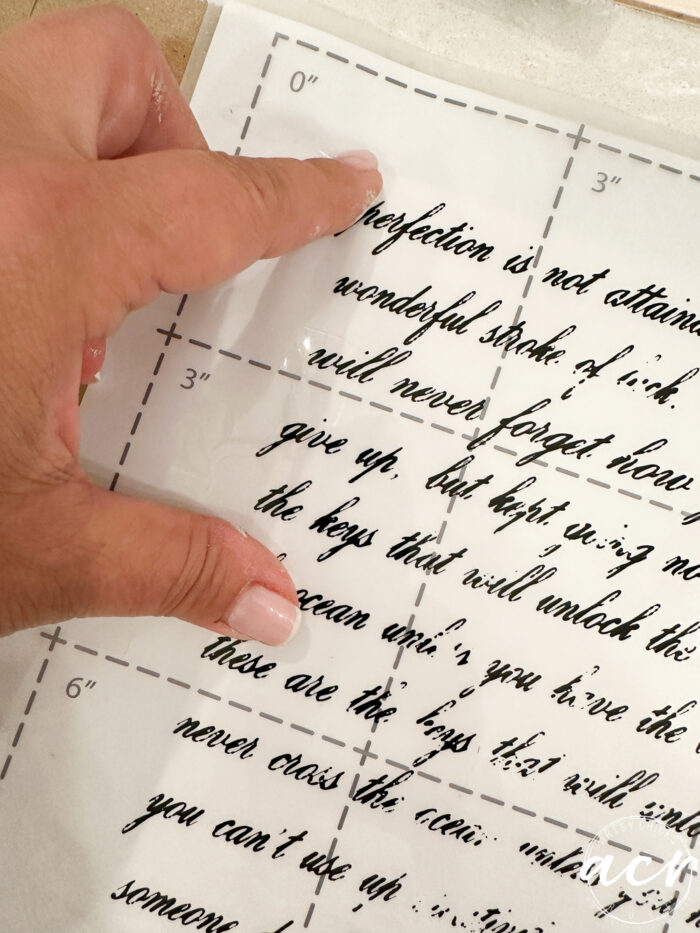 0"
3"
perfection is not
wonderful stroke of
will never forget how
3"
give up, but kept
the keys that will unlock the
ocean until you have the
these are the keys that will
6"
never cross the ocean
you can't use up
someone
acr